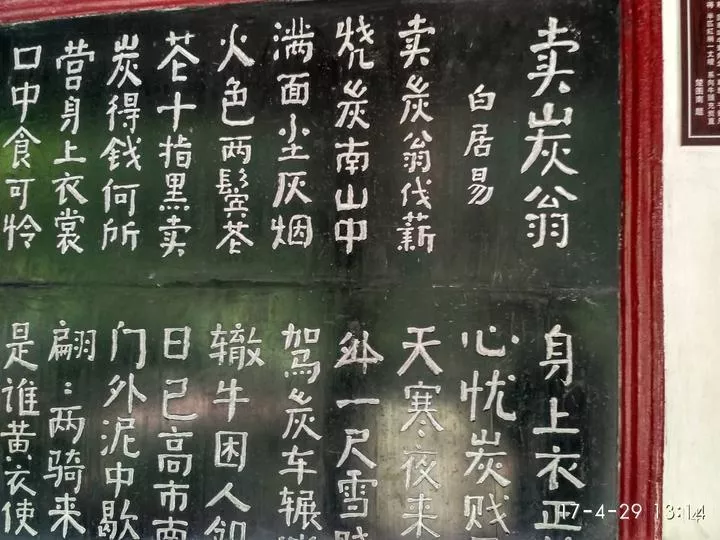 卖炭翁
白居易
卖炭翁伐薪
烧炭南山中
满面尘灰烟
火色两鬓苍
苍十指黑卖
炭得钱何所
营身上衣裳
口中食可怜
身上衣正
心忧炭贱
天寒夜来
外一尺雪
驾炭车辗
辙牛困人
日已高市南
门外泥中歇
翩:两骑来
是谁黄衣使
得 半匹红绡一丈绫 系向牛头充炭直
楚图南 题
17-4-29 13:14